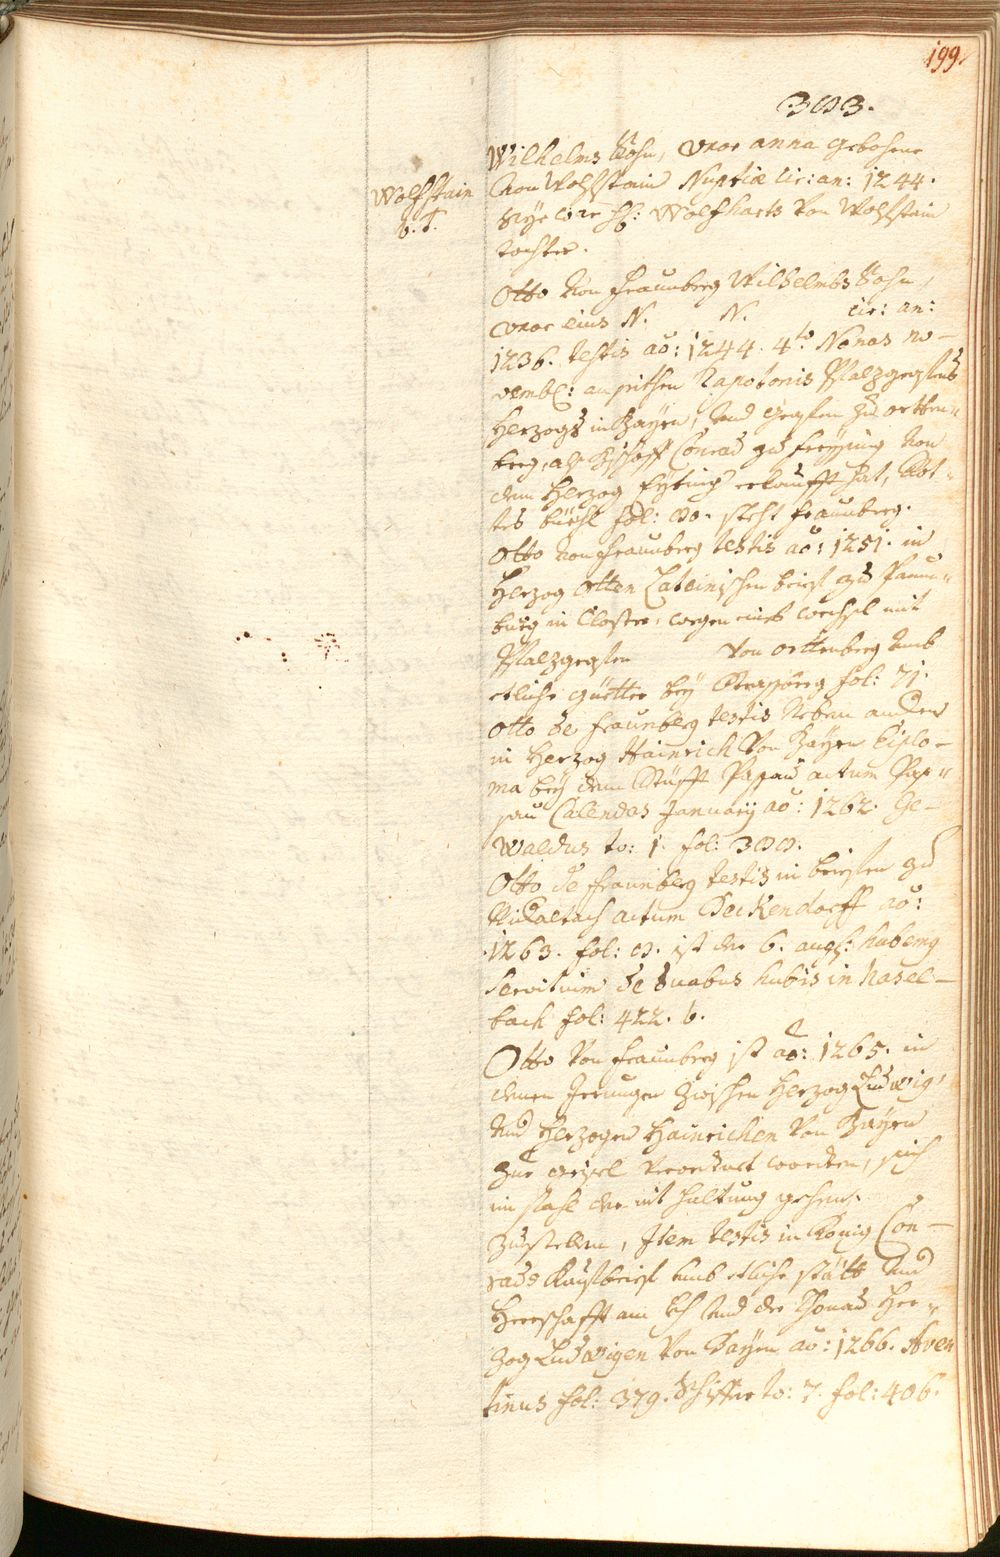 199.
303.
Wilhelms Sohn, vxor anna gebohrne
Wolfstain
von Wolfstain Nuptiæ cir: an: 1244.
b. T.
Wolfharts von Wolfstain
tochter.
Otto von Fraunberg Wilhelmbs Sohn,
vxor eius N. N. cir: an:
1236. testis aõ: 1244. 4to Nonas no-
vemb: Rapotonis Pfalzgrafens
Herzogs in Bayrn, vnd grafen zu ortten-
berg, als Bischoff Conrad zu freysing von
dem Herzog erkaufft hat,
fol: steht fraunberg.
Otto von Fraunberg testis aõ: 1251. in
Herzog Otten Lateinischen brief zu
burg in Closter, wegen eines wechsel mit
Pfalzgrafen von orttenberg vmb
etliche güetter bey fol: 71.
Otto de fraunberg testis Neben andern
in Herzog Hainrich von Bayrn Diplo-
ma bey dem Stüfft Passau actum Pas-
sau Calendas January aõ: 1262. Ge-
waldus to: 1. fol: 300.
Otto de fraunberg testis in briefen zu
Nideraltach actum Deckendorff aõ:
1263. fol: ist der 6. auch: habemus
servitium de duabus hubis in Hasel-
bach fol: 422. b.
Otto von Fraunberg ist aõ: 1265. in
denen Irrungen zwischen Herzog Ludwig,
vnd Herzogen Hainrichen von Bayrn
zur geisel verordnet worden, sich
im fahl der nit haltung
zustellen, Item testis in König Con-
rads Kaufbrief vmb etliche stätt vnd
Herrschafft am Lech vnd der Thonau Her-
zog Ludwigen von Bayrn aõ: 1266. Aven
tinus fol: 379. to: 7. fol: 406.